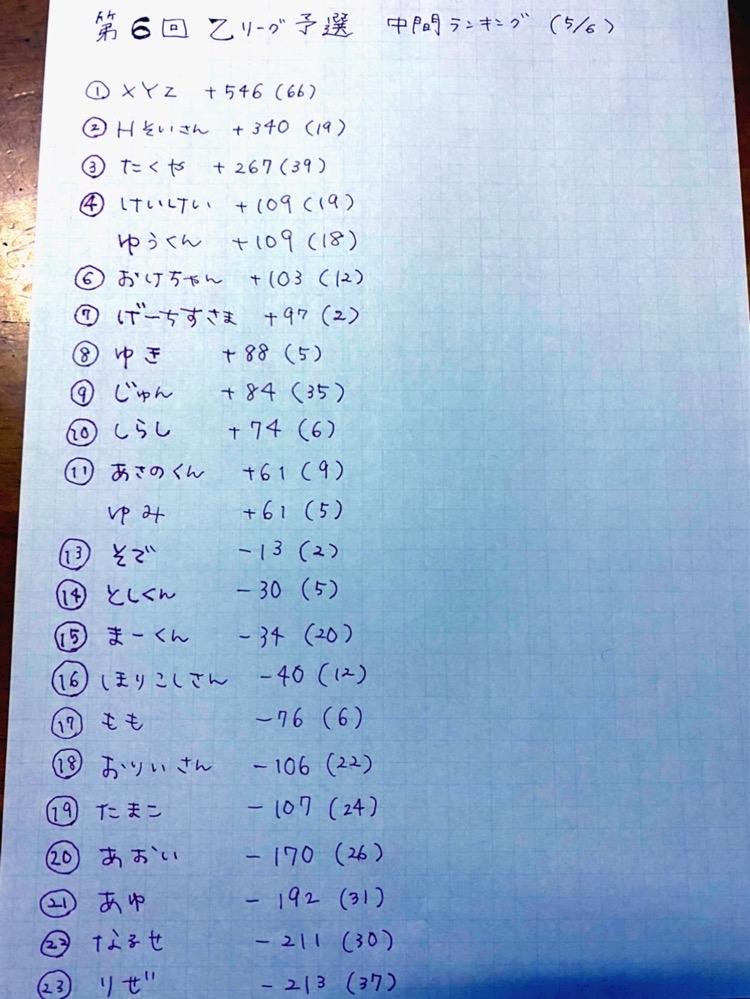 第6回 乙リーグ予選 中間ランキング (5/6)
① XYZ +546 (66)
② Hそいさん +340 (19)
③ たくや +267 (39)
④ けいけい +109 (19)
ゆうくん +109 (18)
⑥ おけちゃん +103 (12)
⑦ げーちすさま +97 (2)
⑧ ゆき +88 (5)
⑨ じゅん +84 (35)
⑩ しらし +74 (6)
⑪ あさのくん +61 (9)
ゆみ +61 (5)
⑬ そで -13 (2)
⑭ としくん -30 (5)
⑮ まーくん -34 (20)
⑯ しまりこしさん -40 (12)
⑰ もも -76 (6)
⑱ おりいさん -106 (22)
⑲ たまこ -107 (24)
⑳ あおい -170 (26)
㉑ あゆ -192 (31)
㉒ なるせ -211 (30)
㉓ りぜ -213 (37)